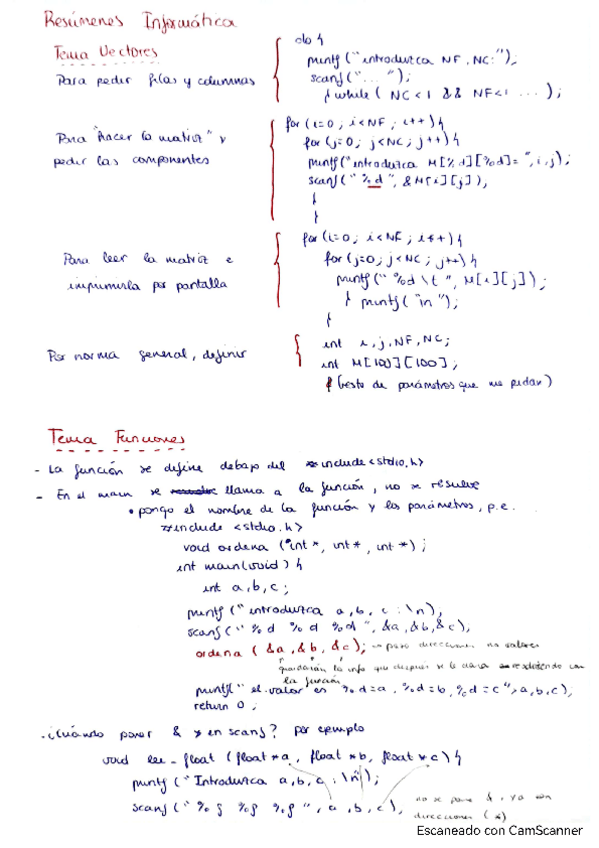 Resúmenes Informática
Tema Vectores
Para pedir filas y columnas
do {
printf ("introduzca NF, NC:");
scanf (" ... ");
} while ( NC < 1 && NF < 1 ... );
Para "hacer la matriz" y
pedir las componentes
for (i=0 ; i<NF ; i++) {
for (j=0; j<NC; j++) {
printf("introduzca M[%d][%d]= ", i, j);
scanf (" %d ", &M[i][j]);
}
}
Para leer la matriz e
imprimirla por pantalla
for (i=0 ; i<NF ; i++) {
for (j=0; j<NC; j++) {
printf(" %d \t ", M[i][j]);
} printf ("\n");
}
Por norma general, definir
int i, j, NF, NC;
int M[100][100];
(resto de parámetros que me pidan)
Tema Funciones
- La función se define debajo del #include <stdio.h>
- En el main se llama a la función, no se resuelve
• pongo el nombre de la función y los parámetros, p.e.
#include <stdio.h>
void ordena (int*, int*, int*);
int main(void) {
int a, b, c;
printf ("introduzca a, b, c : \n");
scanf (" %d %d %d ", &a, &b, &c);
ordena ( &a, &b, &c); → paso direcciones no valores
guardarán la info que después se le dará con
la función
printf(" el valor es %d=a, %d=b, %d=c", a, b, c);
return 0;
- ¿Cuándo poner & y * en scanf? por ejemplo
void lee_float (float *a, float *b, float *c) {
printf ("Introduzca a, b, c : \n");
scanf (" %f %f %f ", a, b, c); no se pone &, ya son
direcciones (*)
Escaneado con CamScanner